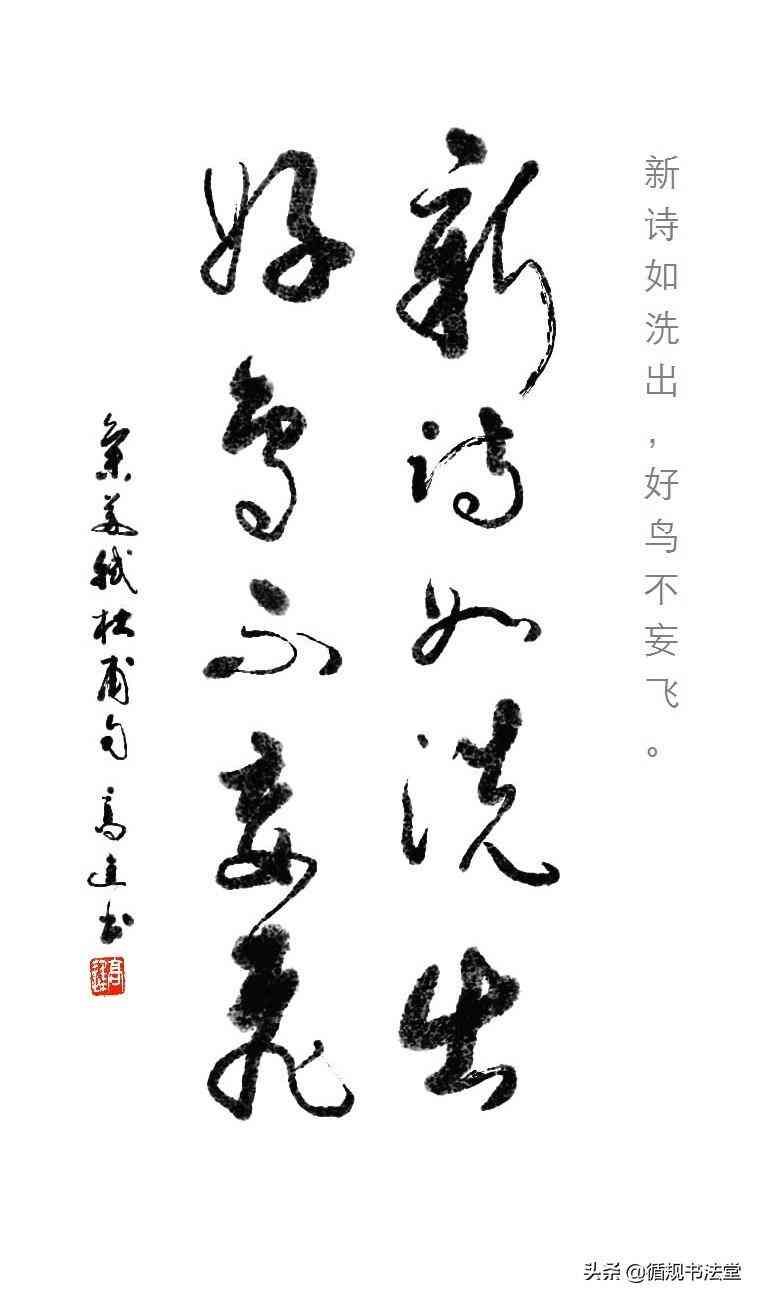 新诗如洗出，好鸟不妄飞。
新诗如洗出
好鸟不妄飞
集苏轼杜甫句 高逵书
头条 @循规书法堂